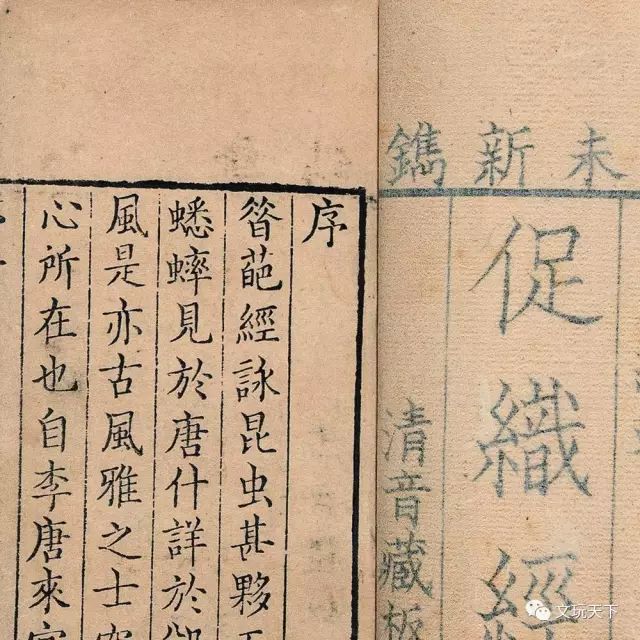 未新鐫
促織經
清音藏板
序
葩經詠昆虫甚夥
蟋蟀見於唐什詳於
風是亦古風雅之士
心所在也自李唐來
文玩天下